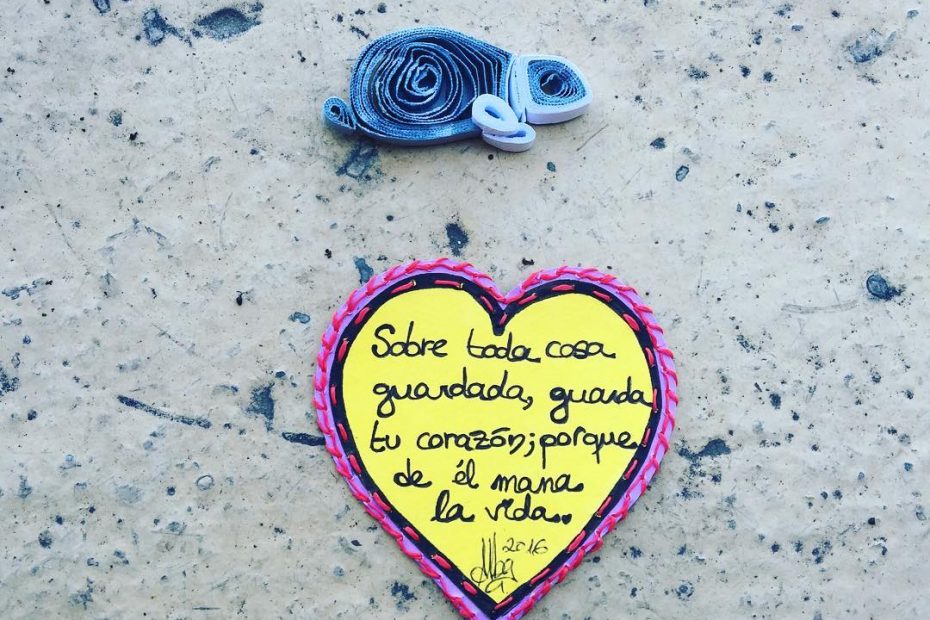 Sobre toda cosa
guardada, guarda
tu corazón; porque
de él mana
la vida..
2016